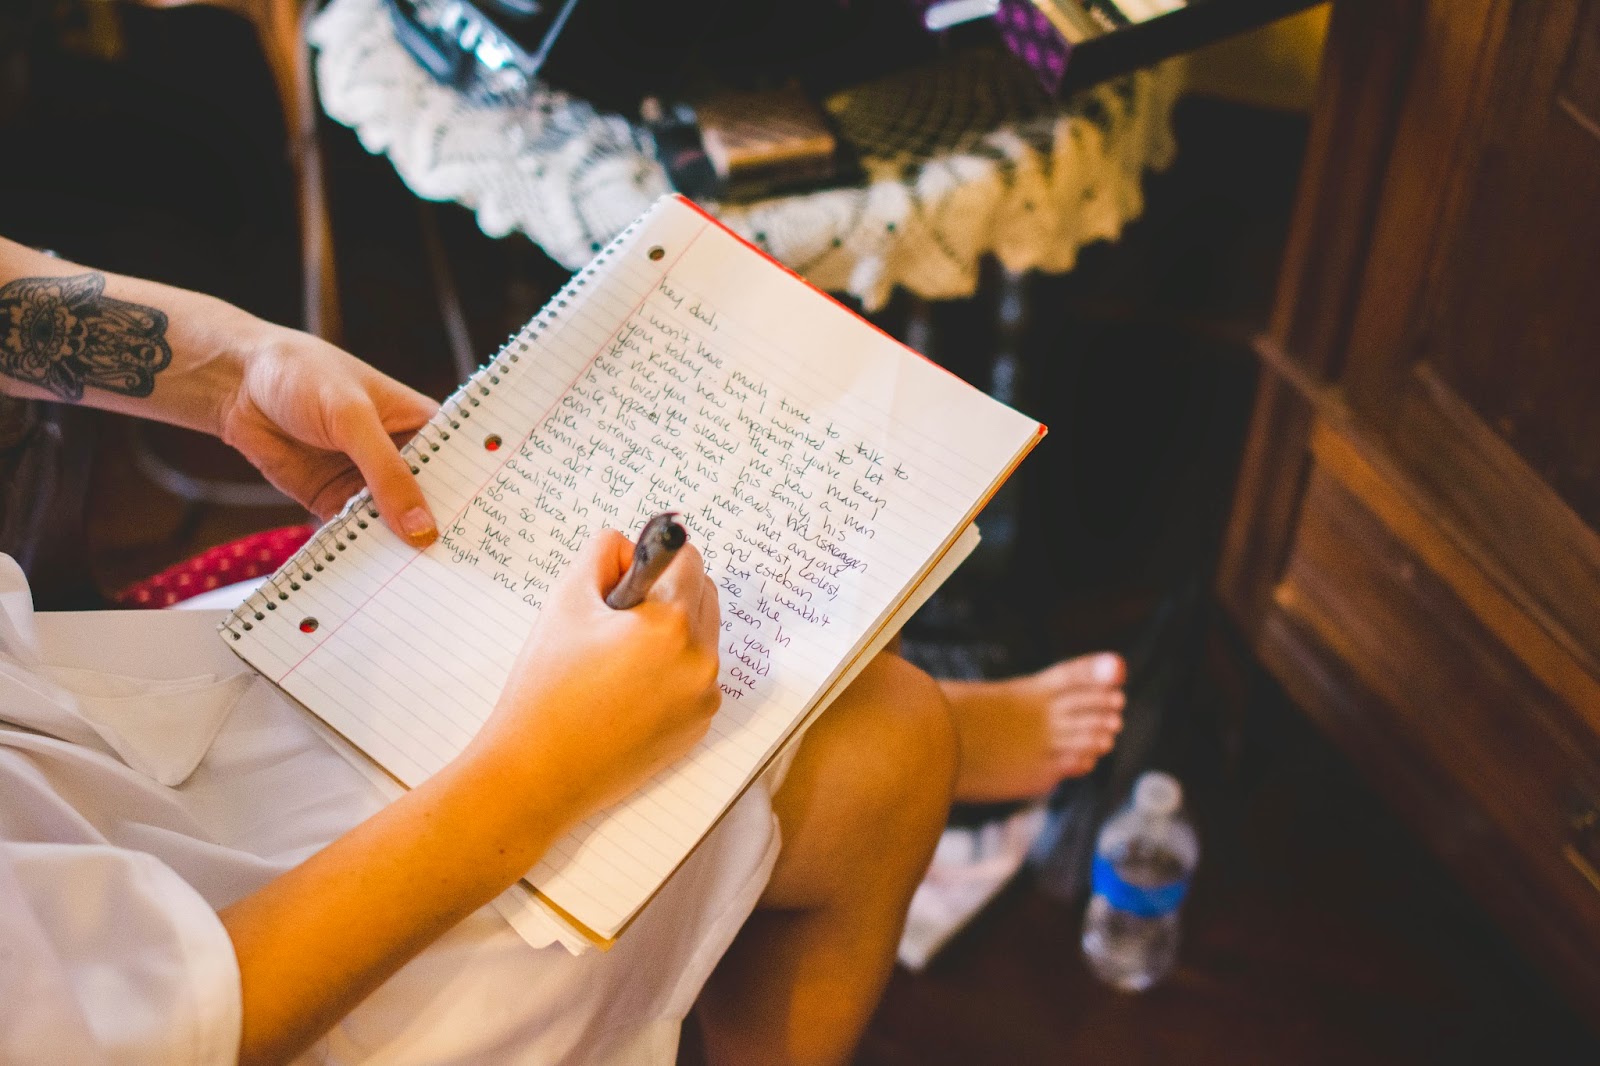 hey dad,
I won't have much time to talk to
you today... but I wanted to let
you know how important you've been
to me. you were the first man I
ever loved. you showed me how a man
is supposed to treat his family, his
wife, his his friends,
even strangers. I have never met anyone
like you, dad. you're the sweetest, coolest,
funniest guy out there and esteban
has a lot to live to but I wouldn't
be with him if see the
qualities in seen in
you these you
so much would
mean as one
I have with want
to thank you
taught me